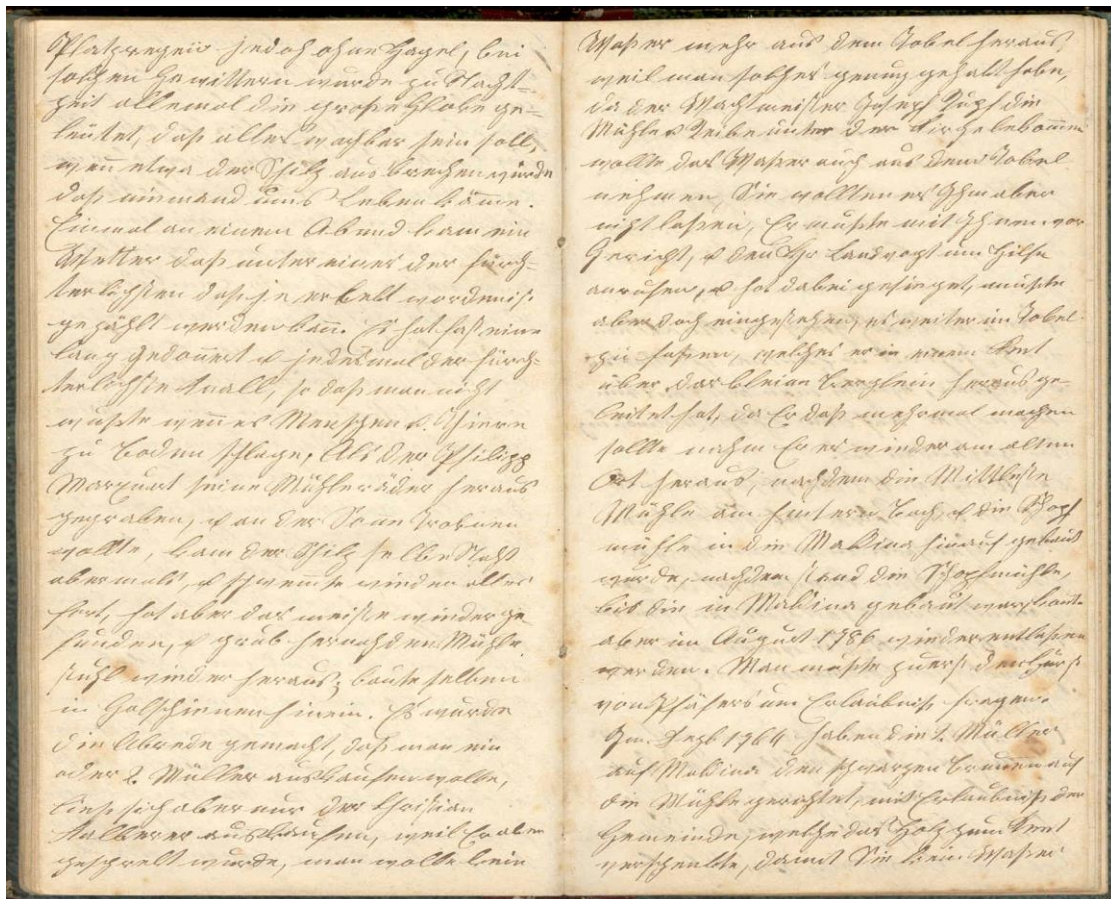 Platzregen jedoch ohne Hagel, bei
solchen Gewittern wurde zu Nacht-
zeit allemal die große Gloke ge-
leutet, daß alles wachbar sein soll,
weñ etwa der Schilz ausbrechen würde
daß niemand ums Leben käme.
Einmal an einem Abend kam ein
Wetter daß unter eines der fürch-
terlichsten daß je erlebt worden ist
gezählt werden kañ. Es hat fast eine
lang gedoñert u jedesmal der fürch-
terlichste Knall, so daß man nicht
wußte weñ es Menschen u. Thiere
zu Boden schlage, Als der Philipp
Marquart seine Mühleräder heraus
gegraben, u an der Soñe troknen
wollte, kam der Schilz selbe Nacht
abermals, u schwemte wieder alles
fort, hat aber das meiste wieder ge-
funden, u grub hernach den Mühle
stuhl wieder heraus, baute selben
in hinein. Es wurde
die Abrede gemacht, daß man ein
oder 2. Müller auskaufen wolle,
ließ sich aber nur der Christian
auskaufen, weil Er aber
geprelt wurde, man wolle kein
Waßer mehr aus dem Tobel heraus,
weil man solches genug gehabt habe,
da der Wachtmeister Joseph Zupf die
Mühle u Reibe unter der Kirche bekommen
wollte das Waßer auch aus dem Tobel
nehmen, Sie wollten es Ihm aber
nicht laßen, Er mußte mit Ihnen vor
Gericht, u den Hr Landvogt um Hilfe
anrufen, u hat dabei gesieget, mußte
aber doch eingestehen, es weiter im Tobel
zu faßen, welches er in einem Kent
über das kleine Berglein heraus ge-
leitet hat, da Er daß mehrmal machen
sollte nahm Er es wieder am alten
Ort heraus, nachdem die Mittleste
Mühle am hintern Bach, u die Schopf
mühle in die Maldina hinauf gebaut
wurde, nachdem stand die Schopfmühle,
bis die in Maldina gebaut war,
aber im August 1786 wieder entlaßen
werden. Man mußte zuerst den Fürst
von Pfäfers um Erlaubniß fragen.
Im Sept 1764 haben die 2. Müller
auf Maldina den schwarzen Bruñen auf
die Mühle gerichtet, mit Erlaubniß der
Gemeinde, welche das Holz zum Kent
verschenkte, damit Sie kein Waßer